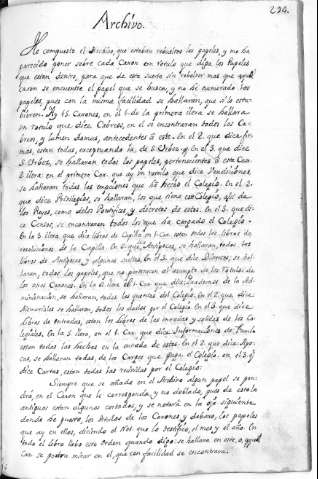 224.
Archivo.
He compuesto el Archivo, que estaban rebueltos los papeles, y me ha
parecido poner sobre cada Caxon un rotulo que diga los Papeles
que estan dentro, para que de esta suerte sin rebolver mas que aquel
caxon se encuentre el papel que se busca, y no he numerado los
papeles, pues con la misma facilidad se hallaran, que si lo estu-
bieran. Ay 15 Caxones, en el 1. de la primera ilera se hallara
un rotulo que dice Cobreos, en el se encontraran todos los
en, y demas, antecedentes a este. En el 2. que dice
estan todas, exceptuando la de S. En el 3. que dice
se hallaran todos los papeles, pertenecientes a este
2. ilera: en el primero Caxon que ay un rotulo que dice
se hallaran todas las que ha hecho el Colegio. En el 2.
que dice Privilegios, se hallaran, los que tiene este Colegio, assi de
los Reyes, como de los Pontifices y decretos de estos. En el 3. que di-
ce Censos, se encontraran todos los que ha cargado el Colegio.
En la 3. ilera que dice libros de Capilla en 1. Can. estan todos los libros de
resoluciones de la Capilla. En 2. que Antiguos, se hallaran, todos los
libros de Antiguos y algunos sueltos. En el 3. que dice Diversos, se ha-
llaran, todos los papeles, que no pertenecen al assumpto de los rotulos de
los otros Caxones. En la 4. ilera el 1. Can que dice de la Ad-
ministracion, se hallaran, todas las quentas del Colegio. En el 2. que dice
Memoriales se hallaran, todos los dados por el Colegio. En el 3. que dice
libros de entradas, estan los libros de las entradas y salidas de los Co-
legiales. En la 5. ilera, en el 1. Can. que dice Informaciones de
estan todas las hechas en la entrada de estos. En el 2. que dice Apo-
cas, se hallaran todas, de los Cargos que paga el Colegio. en el 3. q
dice Cartas, estan todas las recibidas por el Colegio.
Siempre que se añada en el Archivo algun papel se pon-
drá, en el Caxon que le corresponda, y no doblado, pues de estarlo
antiguos estan algunos cortados, y se notará en la oja siguiente
donde he puesto, los titulos de los Caxones y debaxo, los papeles
que ay en ellos, diciendo el Not. que lo testificó, el mes y el año. En
todo el libro hallo este orden quando digo: se hallara en este, o aquel
Can se podra mirar en el, que con facilidad se encontrara.